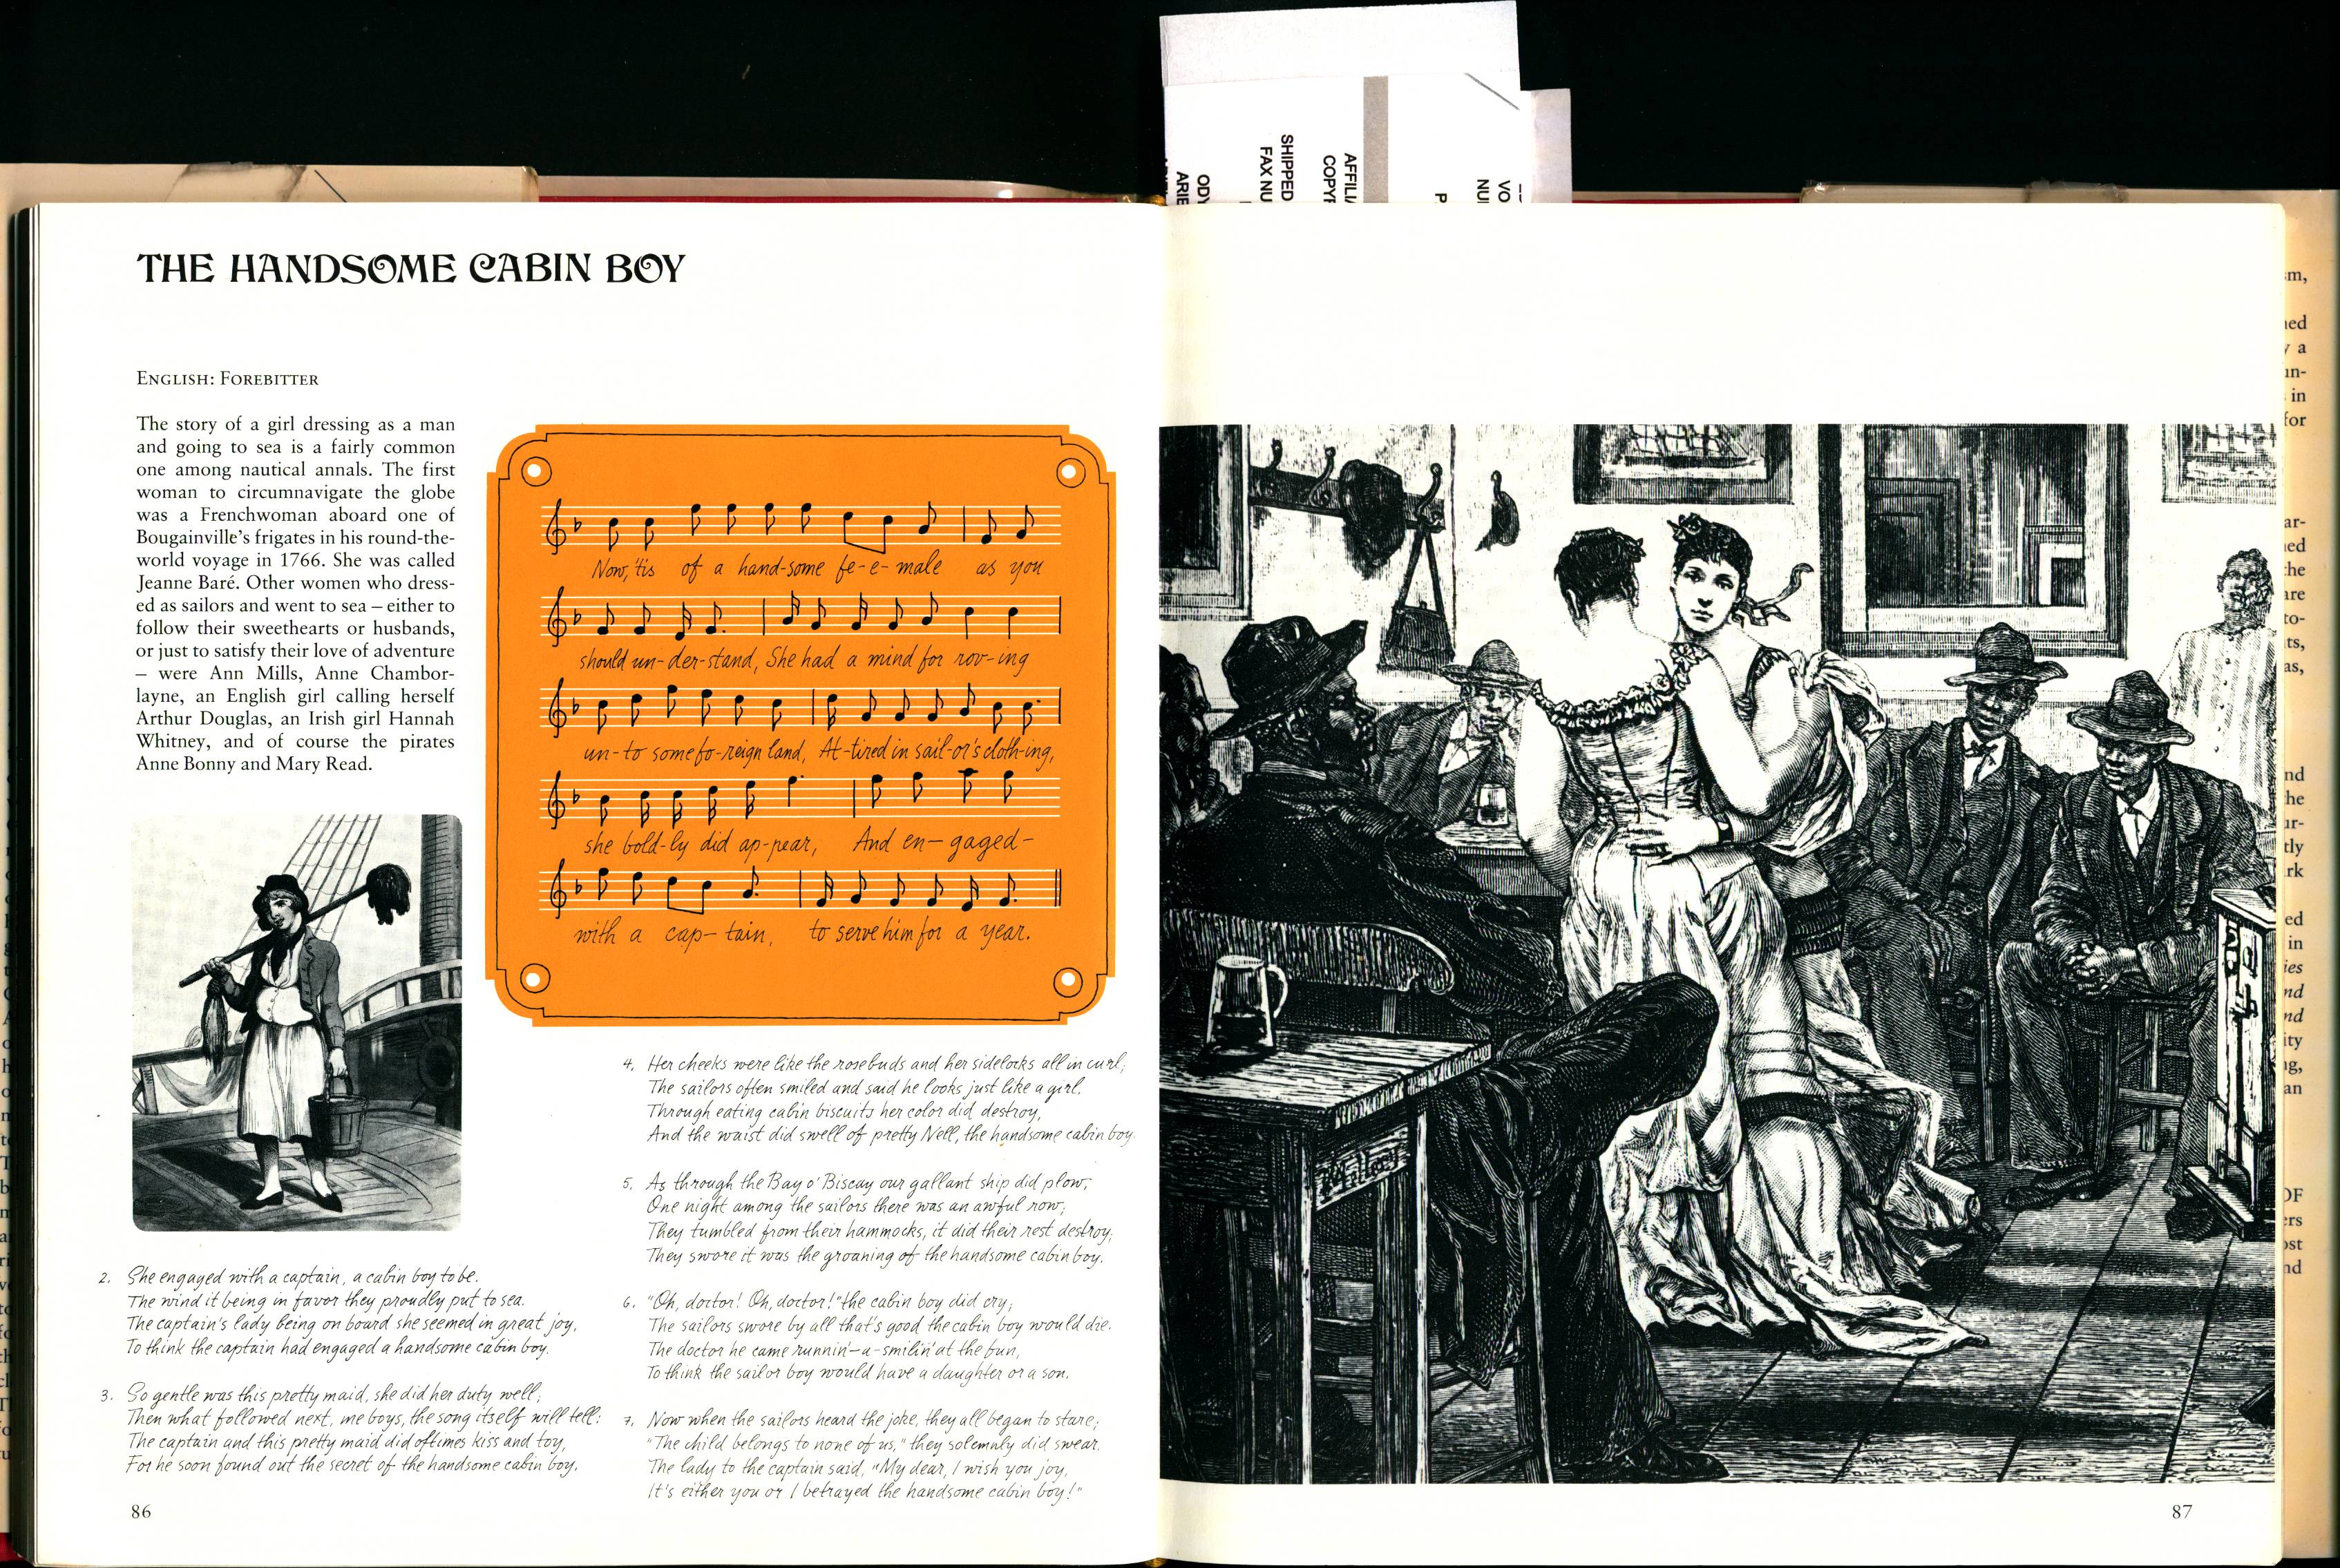 ODY
ARIE
SHIPPED
FAX NU
AFFILI
COPY
P
VO
NUI
THE HANDSOME CABIN BOY
ENGLISH: FOREBITTER
The story of a girl dressing as a man
and going to sea is a fairly common
one among nautical annals. The first
woman to circumnavigate the globe
was a Frenchwoman aboard one of
Bougainville's frigates in his round-the-
world voyage in 1766. She was called
Jeanne Baré. Other women who dress-
ed as sailors and went to sea – either to
follow their sweethearts or husbands,
or just to satisfy their love of adventure
– were Ann Mills, Anne Chambor-
layne, an English girl calling herself
Arthur Douglas, an Irish girl Hannah
Whitney, and of course the pirates
Anne Bonny and Mary Read.
Now, 'tis of a hand-some fe-e-male as you
should un-der-stand, She had a mind for rov-ing
un-to some fo-reign land, At-tired in sail-or's cloth-ing,
she bold-ly did ap-pear, And en-gaged-
with a cap-tain, to serve him for a year.
2. She engaged with a captain, a cabin boy to be.
The wind it being in favor they proudly put to sea.
The captain's lady being on board she seemed in great joy,
To think the captain had engaged a handsome cabin boy.
3. So gentle was this pretty maid, she did her duty well;
Then what followed next, me boys, the song itself will tell:
The captain and this pretty maid did oftimes kiss and toy,
For he soon found out the secret of the handsome cabin boy.
4. Her cheeks were like the rosebuds and her sidelocks all in curl;
The sailors often smiled and said he looks just like a girl.
Through eating cabin biscuits her color did destroy,
And the waist did swell of pretty Nell, the handsome cabin boy.
5. As through the Bay o' Biscay our gallant ship did plow;
One night among the sailors there was an awful row;
They tumbled from their hammocks, it did their rest destroy;
They swore it was the groaning of the handsome cabin boy.
6. "Oh, doctor! Oh, doctor!" the cabin boy did cry;
The sailors swore by all that's good the cabin boy would die.
The doctor he came runnin'-a-smilin' at the fun,
To think the sailor boy would have a daughter or a son.
7. Now when the sailors heard the joke, they all began to stare;
"The child belongs to none of us," they solemnly did swear.
The lady to the captain said, "My dear, I wish you joy,
It's either you or I betrayed the handsome cabin boy!"
86
87